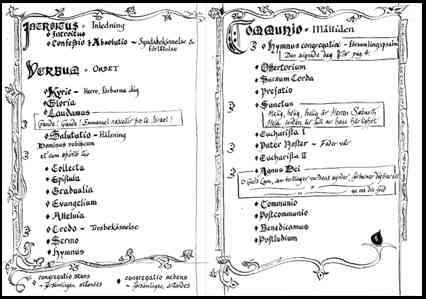 INTROITUS - Inledning
Introitus
Confessio & Absolutio - Syndabekännelse &
förlåtelse
VERBUM - ORDET
Kyrie - Herre, förbarma dig
Gloria
Laudamus
Gaude! Gaude! Emmanuel nascetur pro te Israel!
Salutatio - Hälsning
Dominus vobiscum
et cum spiritu tuo
Collecta
Epistula
Gradualia
Evangelium
Alleluia
Credo - Trosbekännelse
Sermo
Hymnus
congregatio stans
- församlingen stående
congregatio sedens
- församlingen sittande
COMMUNIO - Måltiden
3 Hymnus congregatia - församlingspsalm
Den signade dag
Offertorium
Sursum Corda
Prefatio
3 Sanctus
Helig, helig, helig är Herren Sebaoth
Hela
Eucharistia I
3 Pater Noster - Fader vår
Eucharistia II
3 Agnus Dei
O Guds Lamm, som borttager världens synder, förbarma dig över oss
Communio
Postcommunio
Benedicamus
Postludium